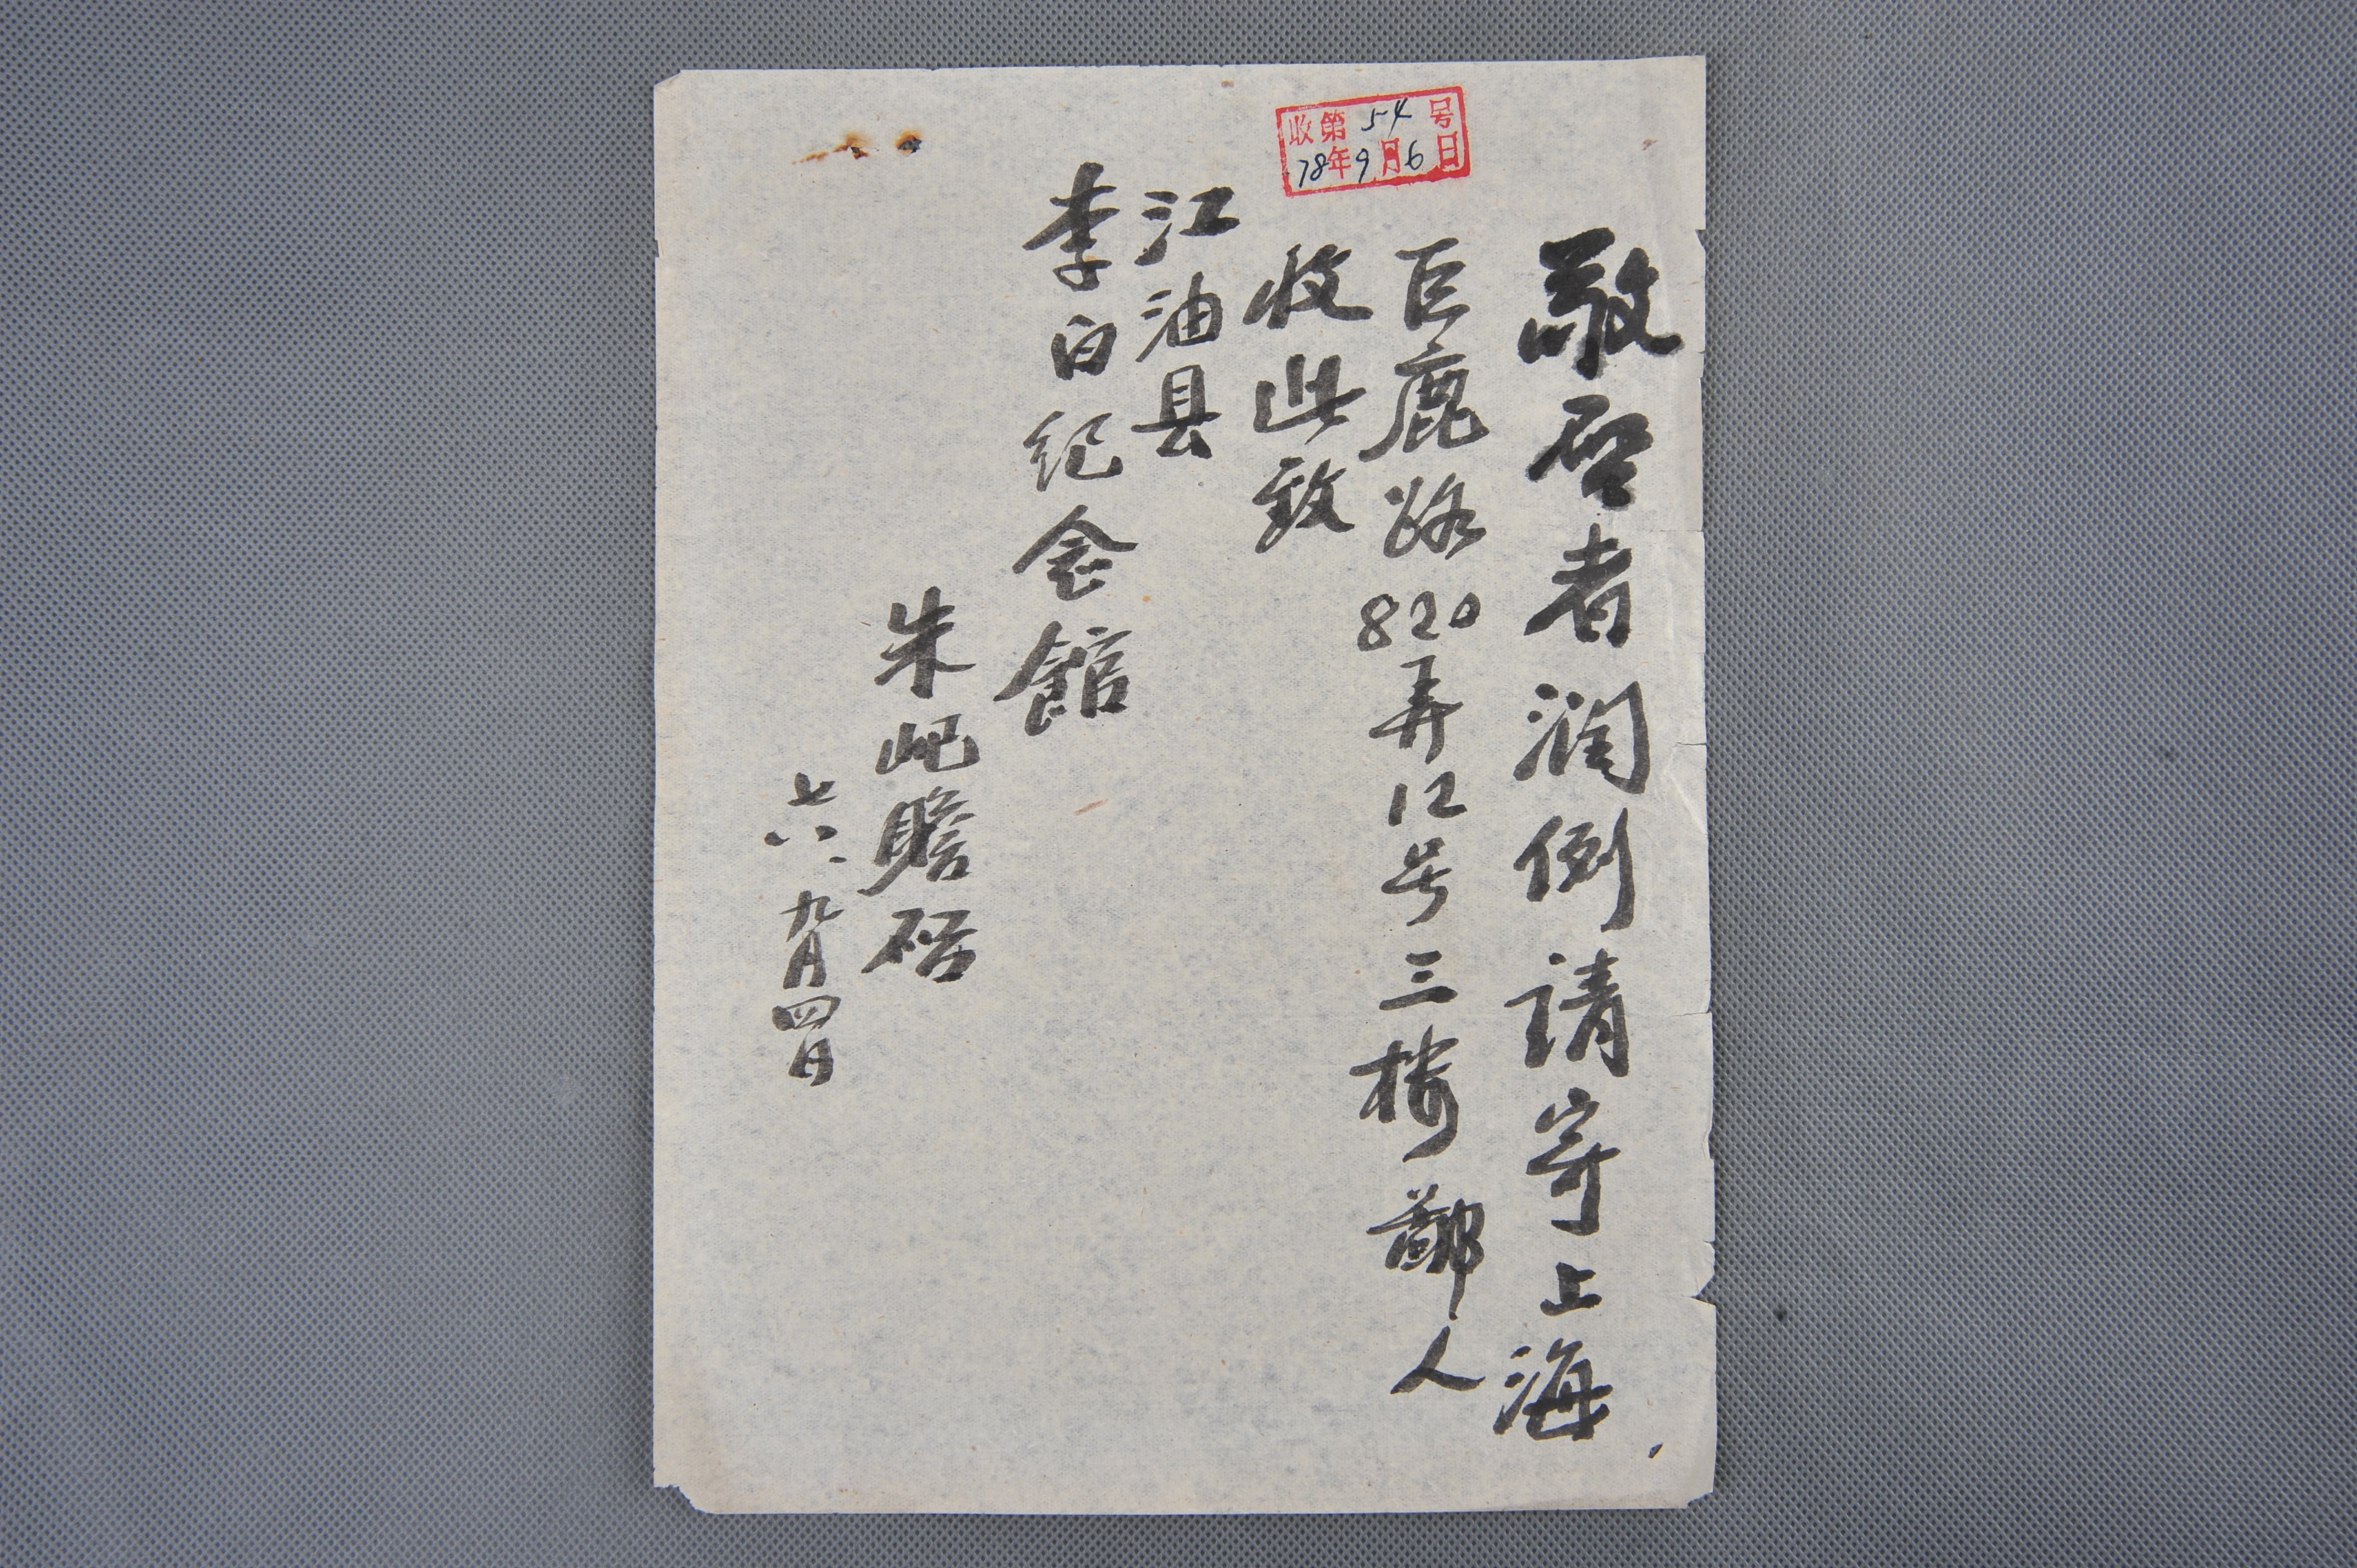 收第54号
78年9月6日
敬启者润例請寄上海
巨鹿路820弄12号三楼鄙人
收此致
江油县
李白纪念館
朱屺瞻启
七八.九月四日